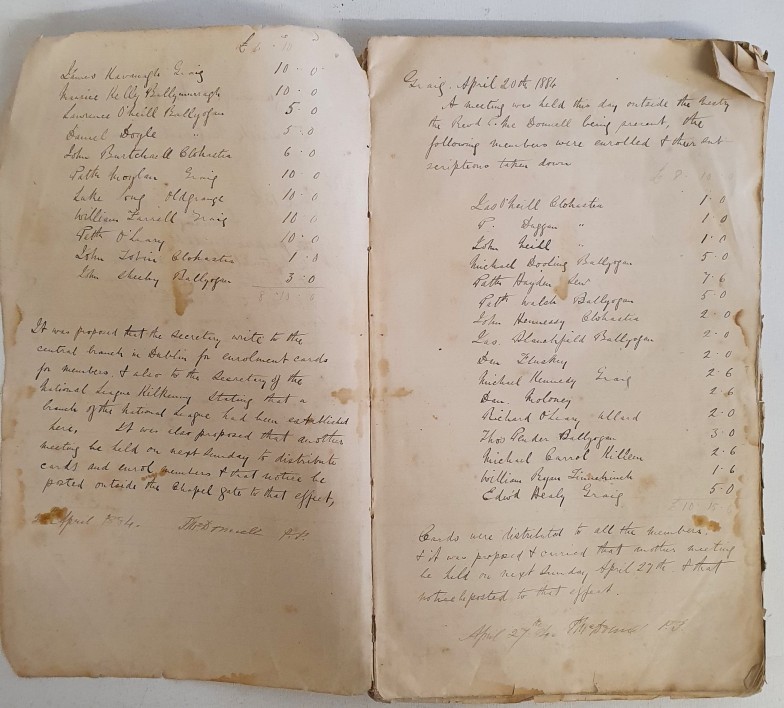 James Kavanagh Graig 10 - 0
Maurice Kelly Ballynunnagh 10 - 0
Lawrence O'Neill Ballyogan 5 - 0
Daniel Doyle " 5 - 0
John Burtchaell Clohastia 6 - 0
Patk Moylan Graig 10 0
Luke Oldgrange 10 0
William Farrell Graig 10 0
Patk O'Leary 10 - 0
John Tobin Clohastia 1 - 0
John Sheehy Ballyogan 3 - 0
It was proposed that the secretary write to the
central branch in Dublin for enrolment cards
for members. & also to the Secretary of the
National League Kilkenny stating that a
branch of the National League had been established
here. It was also proposed that another
meeting be held on next Sunday to distribute
cards and enrol members & that notice be
posted outside the Chapel gate to that effect,
April McDonnell P.P.
Graig. April 20th 1884
A meeting was held this day outside the
the Revd Mc Donnell being present, the
following members were enrolled & their sub
scriptions taken down
Jas O'Neill Clohastia 1 - 0
P. Duggan " 1 - 0
John Neill " 1 - 0
Michael Dooling Ballyogan 5 - 0
Patk Hayden 7 - 6
Patk Walsh Ballyogan 5 - 0
John Hennessy Clohastia 2 - 0
Jas. Blanchfield Ballyogan 2 - 0
Den Fluskey 2 - 0
Michael Kennedy Graig 2 - 6
Dan. Moloney 2 6
Richard O'Leary Ullard 2 - 0
Thos Pender Ballyogan 3 - 0
Michael Carrol Killeen 2 - 6
William Ryan 1 - 6
Edwd Healy Graig 5 - 0
Cards were distributed to all the members.
& it was proposed & carried that another meeting
be held on next Sunday April 27th. & that
notice be posted to that effect.
April 27th McDonnell P.P.